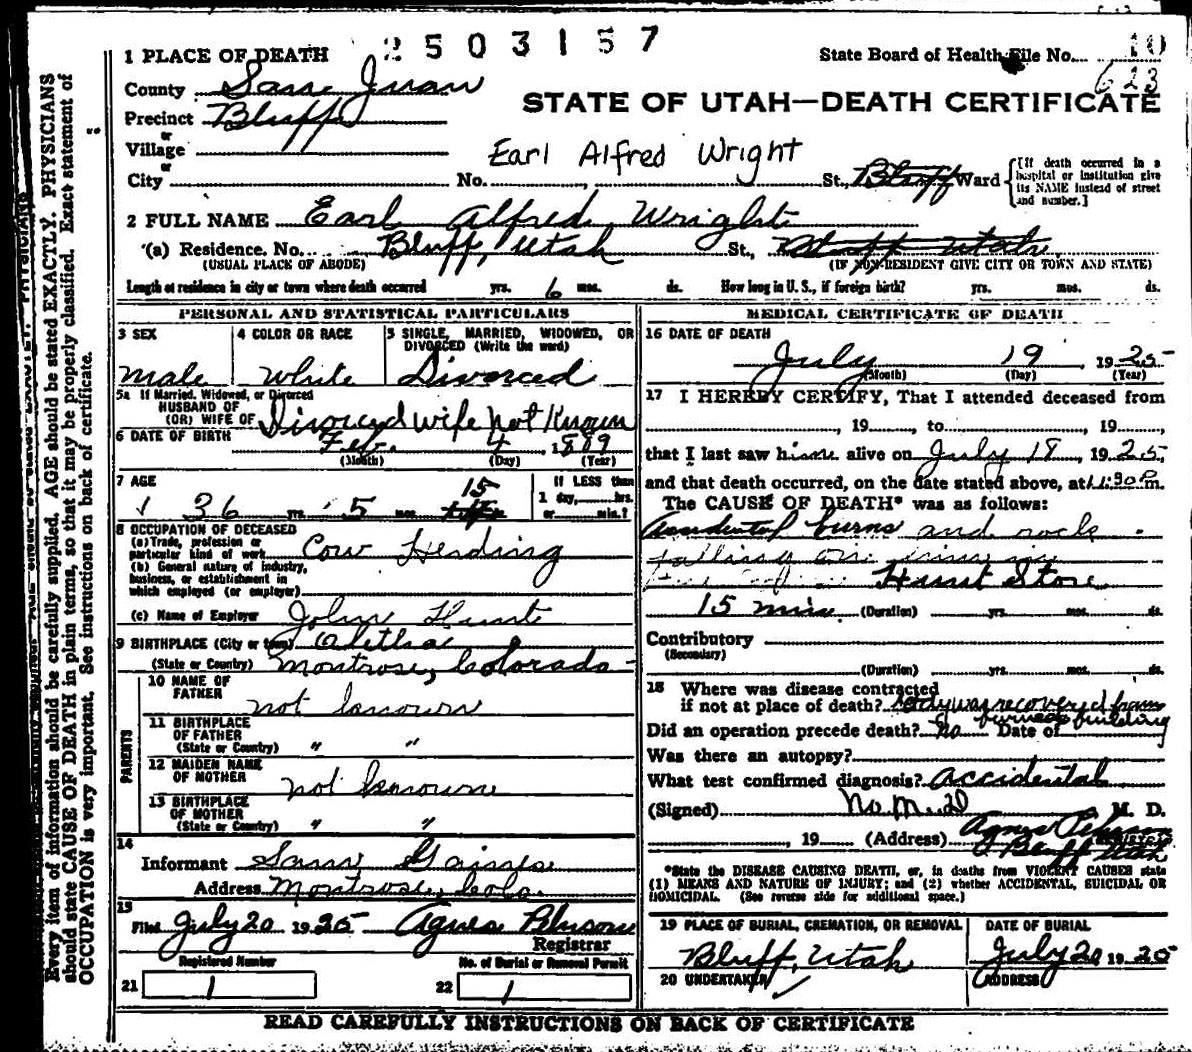 2503157
1 PLACE OF DEATH
State Board of Health File No. 10
623
County San Juan
STATE OF UTAH—DEATH CERTIFICATE
Precinct Bluff
or
Village
Earl Alfred Wright
or
City No. St., Bluff Ward
[If death occurred in a hospital or institution give its NAME instead of street and number.]
2 FULL NAME Earl Alfred Wright
(a) Residence. No. Bluff, Utah St., Bluff Utah
(USUAL PLACE OF ABODE) (IF NON-RESIDENT GIVE CITY OR TOWN AND STATE)
Length of residence in city or town where death occurred yrs. 6 mos. ds. How long in U. S., if foreign birth? yrs. mos. ds.
PERSONAL AND STATISTICAL PARTICULARS
3 SEX 4 COLOR OR RACE 5 SINGLE, MARRIED, WIDOWED, OR DIVORCED (Write the word)
male White Divorced
5a If Married, Widowed, or Divorced
HUSBAND OF
(OR) WIFE OF Divorced wife not Known
6 DATE OF BIRTH Feb. 4 1889
(Month) (Day) (Year)
7 AGE If LESS than
15
36 yrs. 5 mos. 1 day, hrs.
or min.?
8 OCCUPATION OF DECEASED
(a) Trade, profession or particular kind of work Cow Herding
(b) General nature of industry, business, or establishment in which employed (or employer)
(c) Name of Employer John Hunt
9 BIRTHPLACE (City or town) Oletha
(State or Country) Montrose, Colorado
PARENTS
10 NAME OF FATHER not known
11 BIRTHPLACE OF FATHER
(State or Country) " "
12 MAIDEN NAME OF MOTHER not known
13 BIRTHPLACE OF MOTHER
(State or Country) " "
14
Informant Gaines
Address Montrose, Colo.
15
Filed July 20 1925 Agnes
Registrar
Registered Number No. of Burial or Removal Permit
21 1 22 1
MEDICAL CERTIFICATE OF DEATH
16 DATE OF DEATH
July 19 1925
(Month) (Day) (Year)
17 I HEREBY CERTIFY, That I attended deceased from
, 19 , to , 19 ,
that I last saw him alive on July 18, 1925,
and that death occurred, on the date stated above, at 11:30 P.m.
The CAUSE OF DEATH* was as follows:
Accidental burns and rock
falling on him in
Hunt Store
15 min (Duration) yrs. mos. ds.
Contributory
(Secondary)
(Duration) yrs. mos. ds.
18 Where was disease contracted
if not at place of death? body was recovered from
burned building
Did an operation precede death? no Date of
Was there an autopsy?
What test confirmed diagnosis? accidental
(Signed) No M.D M. D.
, 19 (Address) Agnes
Bluff Utah
*State the DISEASE CAUSING DEATH, or, in deaths from VIOLENT CAUSES state
(1) MEANS AND NATURE OF INJURY; and (2) whether ACCIDENTAL, SUICIDAL OR
HOMICIDAL. (See reverse side for additional space.)
19 PLACE OF BURIAL, CREMATION, OR REMOVAL DATE OF BURIAL
Bluff, Utah July 20 1925
20 UNDERTAKER ADDRESS
READ CAREFULLY INSTRUCTIONS ON BACK OF CERTIFICATE
Every item of information should be carefully supplied. AGE should be stated EXACTLY. PHYSICIANS
should state CAUSE OF DEATH in plain terms, so that it may be properly classified. Exact statement of
OCCUPATION is very important. See instructions on back of certificate.